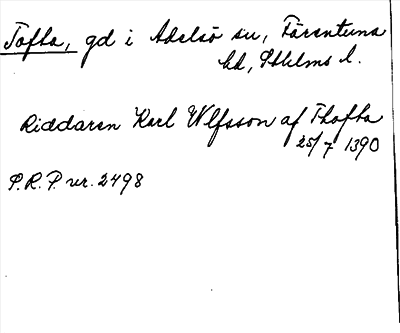 Tofta, gd i Adelsö sn, Färentuna
hd, Sthlms l.
Riddaren Karl Ulfsson af Thofta
25/7 1390
P.R.P. nr. 2498